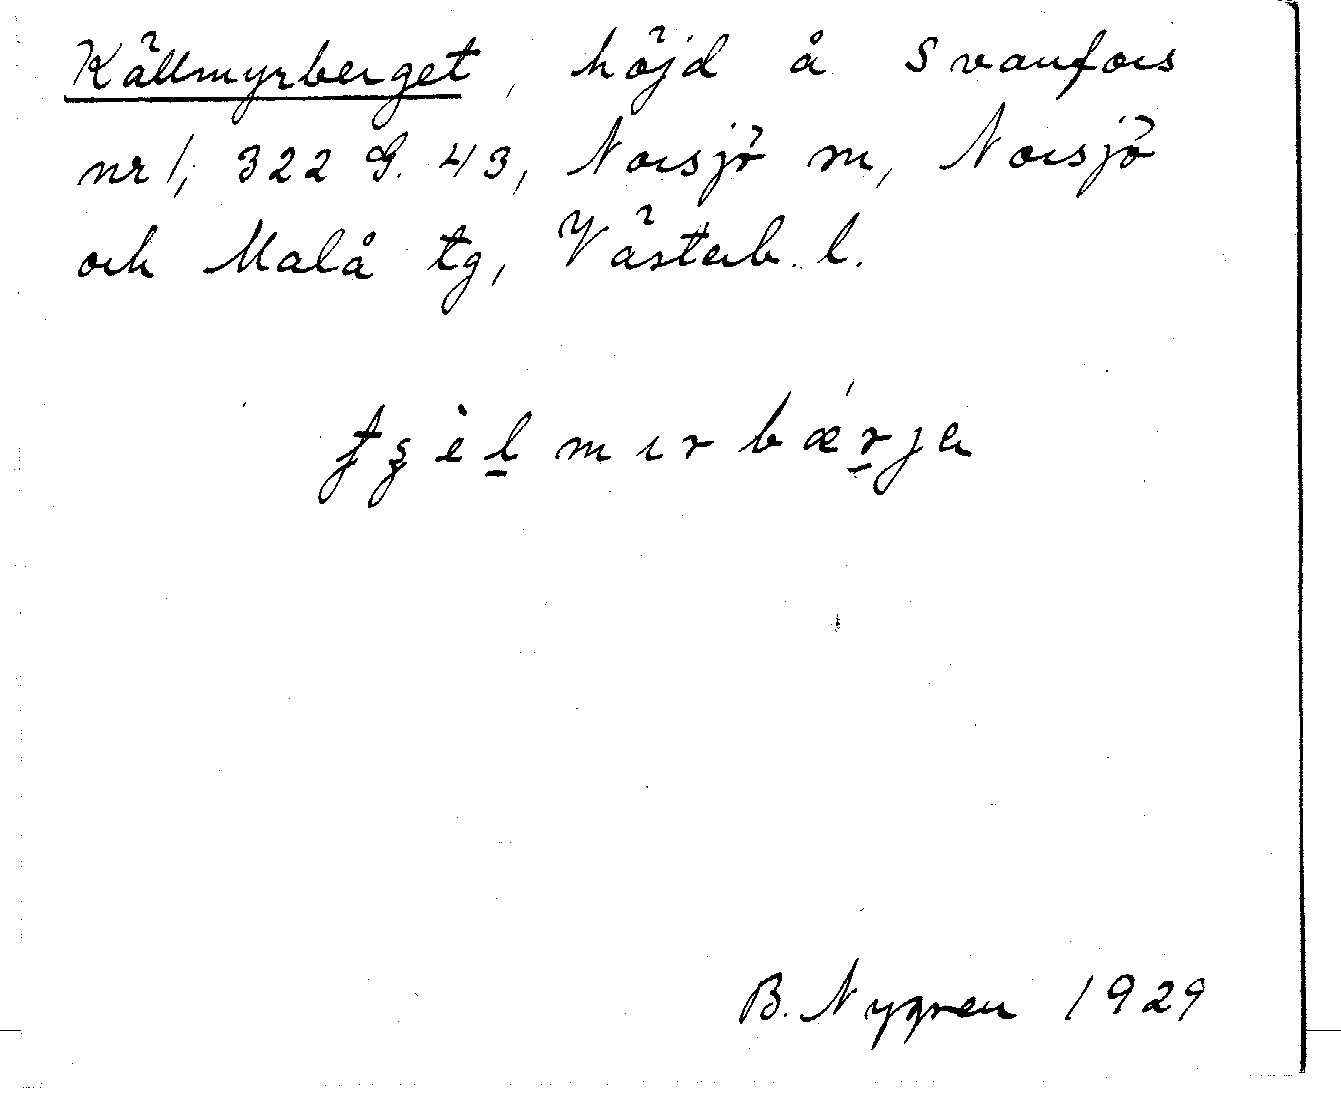 Källmyrberget, höjd å Svanfors
nr 1, 322 G. 43, Norsjö m, Norsjö
och Malå tg, Västerb. l.
tʂèl̲mɪrbǽr̲ja
B. Nygren 1929